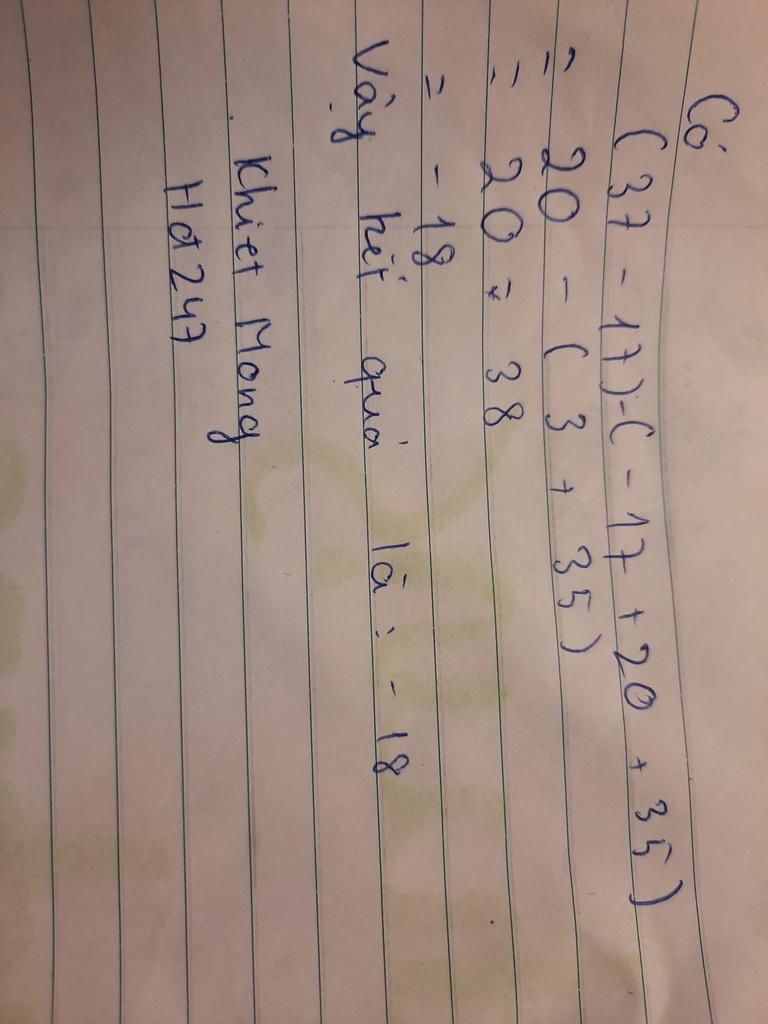 Có
(37 - 17) - ( - 17 + 20 + 35)
= 20 - ( 3 + 35)
= 20 - 38
= - 18
Vậy kết quả là : - 18
Khiet Mong
Hđ247